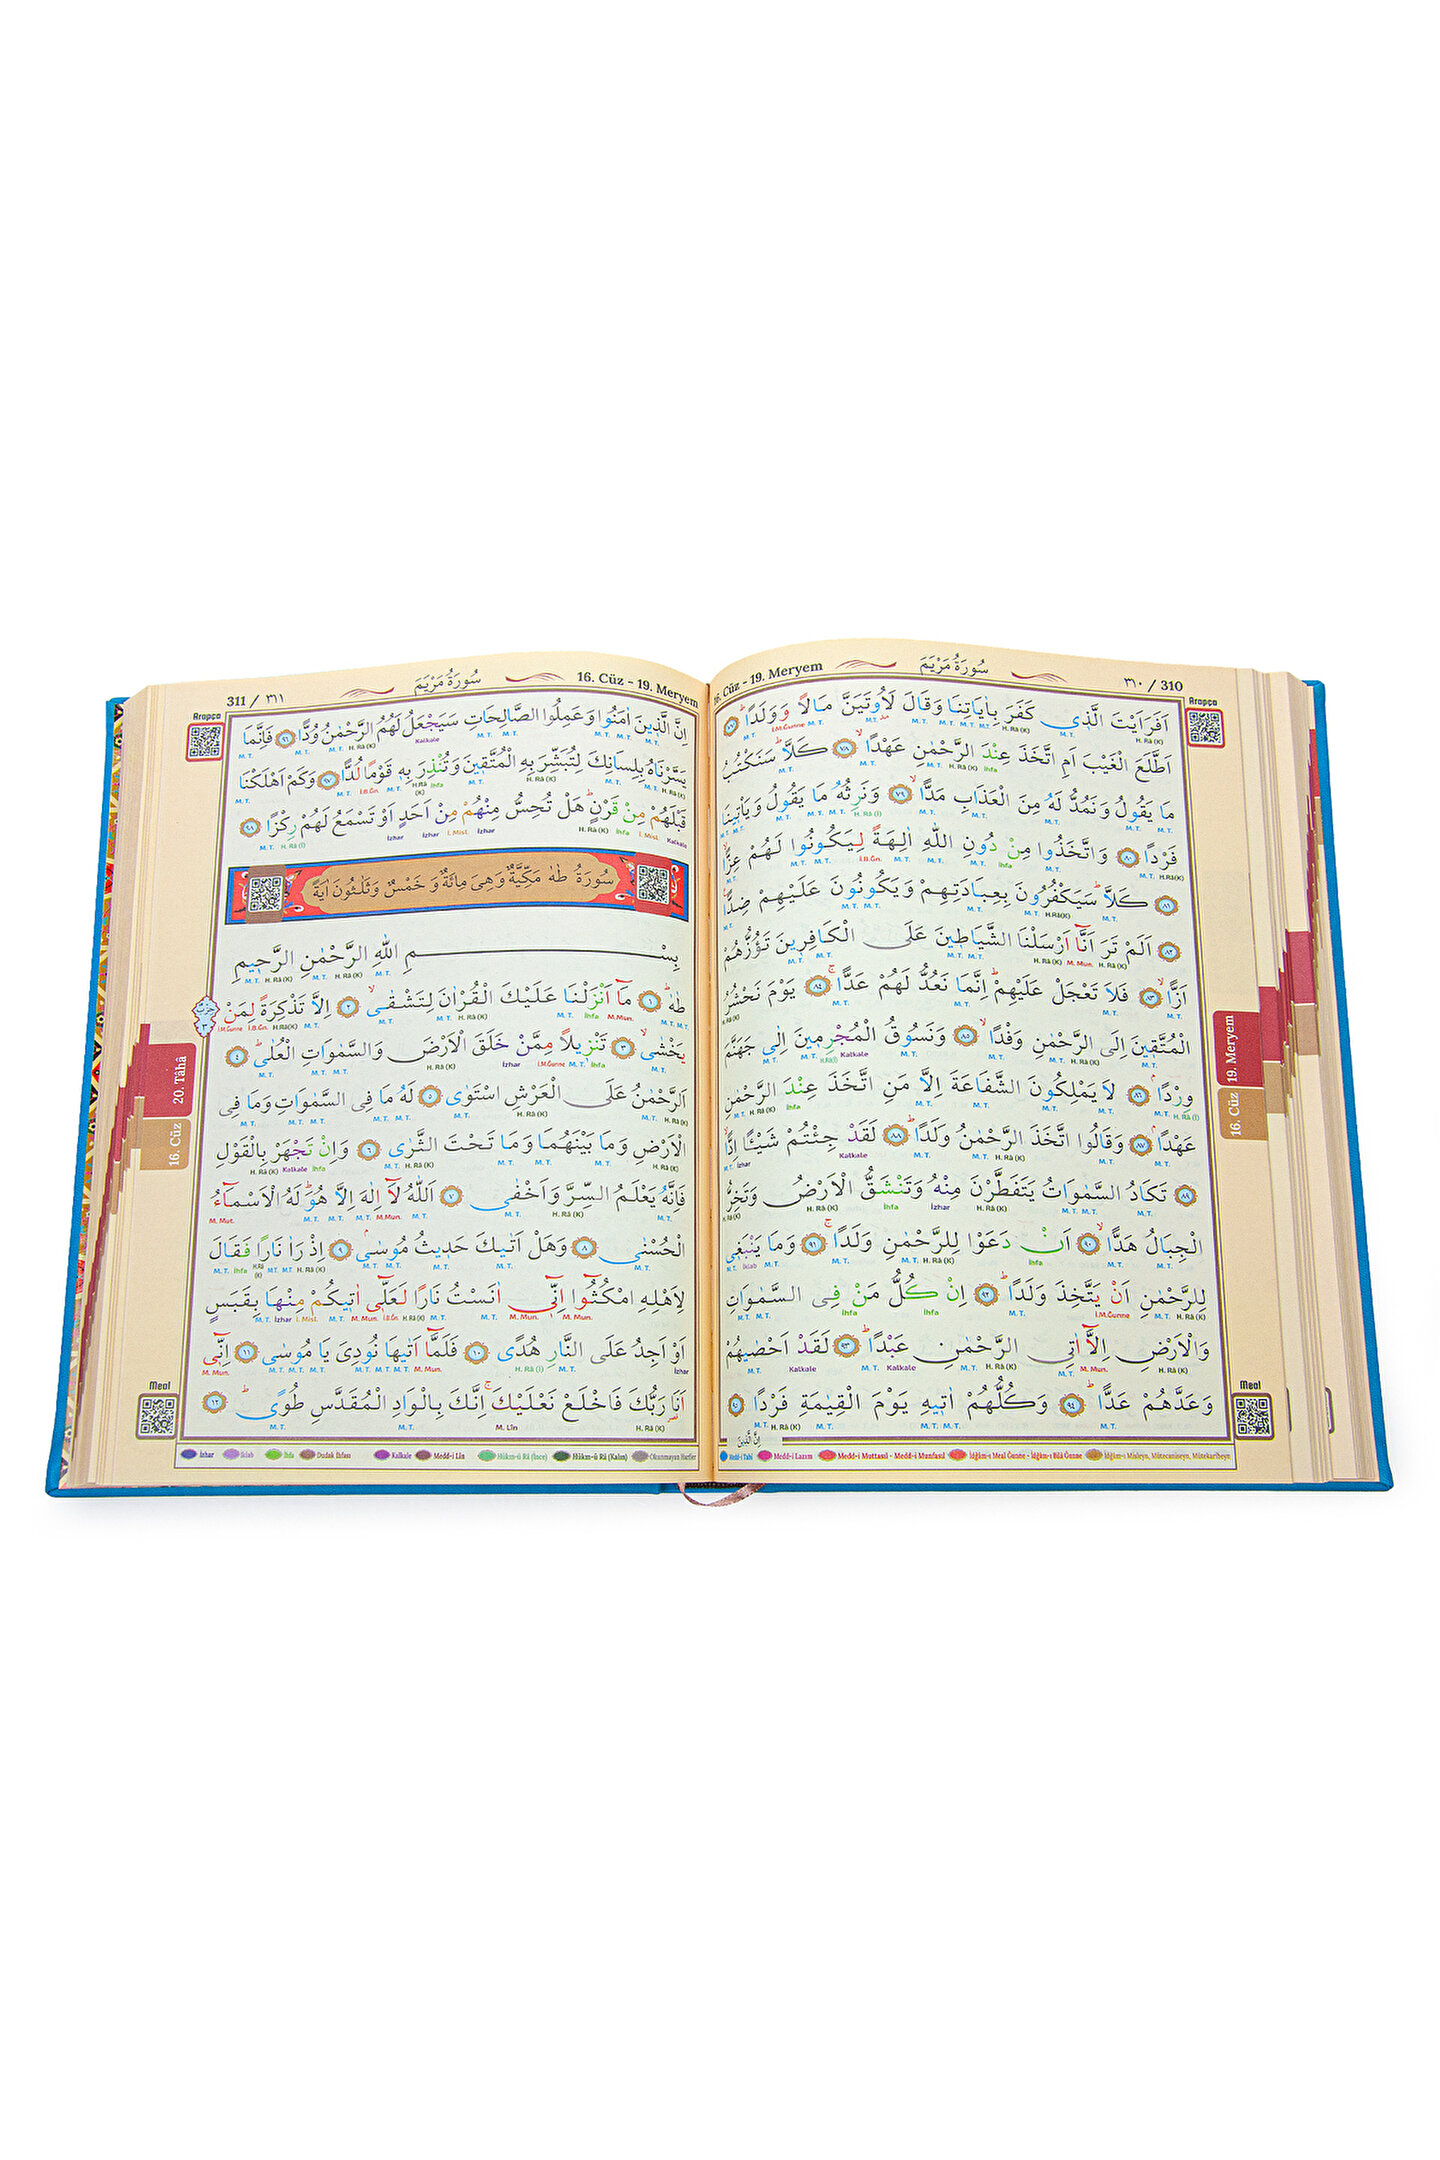 16. Cüz - 19. Meryem
سُورَةُ مَرْيَمَ
٣١٠ / 310
Arapça
اَفَرَاَيْتَ الَّذٖي كَفَرَ بِاٰيَاتِنَا وَقَالَ لَاُوتَيَنَّ مَالاً وَوَلَداًؕ ﴿٧٧﴾
اَطَّلَعَ الْغَيْبَ اَمِ اتَّخَذَ عِنْدَ الرَّحْمٰنِ عَهْداًۙ ﴿٧٨﴾ كَلَّاؕ سَنَكْتُبُ
مَا يَقُولُ وَنَمُدُّ لَهُ مِنَ الْعَذَابِ مَداًّۙ ﴿٧٩﴾ وَنَرِثُهُ مَا يَقُولُ وَيَأْتٖينَا
فَرْداً ﴿٨٠﴾ وَاتَّخَذُوا مِنْ دُونِ اللّٰهِ اٰلِهَةً لِيَكُونُوا لَهُمْ عِزاًّۙ
﴿٨١﴾ كَلَّاؕ سَيَكْفُرُونَ بِعِبَادَتِهِمْ وَيَكُونُونَ عَلَيْهِمْ ضِداًّ
﴿٨٢﴾ اَلَمْ تَرَ اَنَّٓا اَرْسَلْنَا الشَّيَاطٖينَ عَلَى الْكَافِرٖينَ تَؤُزُّهُمْ
اَزاًّۙ ﴿٨٣﴾ فَلَا تَعْجَلْ عَلَيْهِمْؕ اِنَّمَا نَعُدُّ لَهُمْ عَداًّۚ ﴿٨٤﴾ يَوْمَ نَحْشُرُ
الْمُتَّقٖينَ اِلَى الرَّحْمٰنِ وَفْداًۙ ﴿٨٥﴾ وَنَسُوقُ الْمُجْرِمٖينَ اِلٰى جَهَنَّمَ
وِرْداًۘ ﴿٨٦﴾ لَا يَمْلِكُونَ الشَّفَاعَةَ اِلَّا مَنِ اتَّخَذَ عِنْدَ الرَّحْمٰنِ
عَهْداًۘ ﴿٨٧﴾ وَقَالُوا اتَّخَذَ الرَّحْمٰنُ وَلَداًؕ ﴿٨٨﴾ لَقَدْ جِئْتُمْ شَيْـٔاً اِداًّۙ
﴿٨٩﴾ تَكَادُ السَّمٰوَاتُ يَتَفَطَّرْنَ مِنْهُ وَتَنْشَقُّ الْاَرْضُ وَتَخِرُّ
الْجِبَالُ هَداًّۙ ﴿٩٠﴾ اَنْ دَعَوْا لِلرَّحْمٰنِ وَلَداًۚ ﴿٩١﴾ وَمَا يَنْبَغٖي
لِلرَّحْمٰنِ اَنْ يَتَّخِذَ وَلَداًؕ ﴿٩٢﴾ اِنْ كُلُّ مَنْ فِي السَّمٰوَاتِ
وَالْاَرْضِ اِلَّٓا اٰتِي الرَّحْمٰنِ عَبْداًؕ ﴿٩٣﴾ لَقَدْ اَحْصٰيهُمْ
وَعَدَّهُمْ عَداًّؕ ﴿٩٤﴾ وَكُلُّهُمْ اٰتٖيهِ يَوْمَ الْقِيٰمَةِ فَرْداً ﴿٩٥﴾
اِنَّ الَّذٖينَ
19. Meryem
16. Cüz
Meal
Medd-i Tabî Medd-i Lazım Medd-i Muttasıl - Medd-i Munfasıl İdğâm-ı Meal Ğunne - İdğâm-ı Bilâ Ğunne İdğâm-ı Misleyn, Mütecaniseyn, Mütekaribeyn
311 / ٣١١
سُورَةُ مَرْيَمَ
16. Cüz - 19. Meryem
Arapça
اِنَّ الَّذٖينَ اٰمَنُوا وَعَمِلُوا الصَّالِحَاتِ سَيَجْعَلُ لَهُمُ الرَّحْمٰنُ وُداًّ ﴿٩٦﴾ فَاِنَّمَا
يَسَّرْنَاهُ بِلِسَانِكَ لِتُبَشِّرَ بِهِ الْمُتَّقٖينَ وَتُنْذِرَ بِهٖ قَوْماً لُداًّ ﴿٩٧﴾ وَكَمْ اَهْلَكْنَا
قَبْلَهُمْ مِنْ قَرْنٍؕ هَلْ تُحِسُّ مِنْهُمْ مِنْ اَحَدٍ اَوْ تَسْمَعُ لَهُمْ رِكْزاً ﴿٩٨﴾
سُورَةُ طٰهٰ مَكِّيَّةٌ وَهِيَ مِائَةٌ وَخَمْسٌ وَثَلٰثُونَ اٰيَةً
بِسْمِ اللّٰهِ الرَّحْمٰنِ الرَّحٖيمِ
طٰهٰؕ ﴿١﴾ مَٓا اَنْزَلْنَا عَلَيْكَ الْقُرْاٰنَ لِتَشْقٰىۙ ﴿٢﴾ اِلَّا تَذْكِرَةً لِمَنْ
يَخْشٰىۙ ﴿٣﴾ تَنْزٖيلاً مِمَّنْ خَلَقَ الْاَرْضَ وَالسَّمٰوَاتِ الْعُلٰىؕ ﴿٤﴾
اَلرَّحْمٰنُ عَلَى الْعَرْشِ اسْتَوٰى ﴿٥﴾ لَهُ مَا فِي السَّمٰوَاتِ وَمَا فِي
الْاَرْضِ وَمَا بَيْنَهُمَا وَمَا تَحْتَ الثَّرٰى ﴿٦﴾ وَاِنْ تَجْهَرْ بِالْقَوْلِ
فَاِنَّهُ يَعْلَمُ السِّرَّ وَاَخْفٰى ﴿٧﴾ اَللّٰهُ لَٓا اِلٰهَ اِلَّا هُوَؕ لَهُ الْاَسْمَٓاءُ
الْحُسْنٰى ﴿٨﴾ وَهَلْ اَتٰيكَ حَدٖيثُ مُوسٰىۘ ﴿٩﴾ اِذْ رَاٰ نَاراً فَقَالَ
لِاَهْلِهِ امْكُثُٓوا اِنّٖٓي اٰنَسْتُ نَاراً لَعَلّٖٓي اٰتٖيكُمْ مِنْهَا بِقَبَسٍ
اَوْ اَجِدُ عَلَى النَّارِ هُدًى ﴿١٠﴾ فَلَمَّٓا اَتٰيهَا نُودِيَ يَا مُوسٰى ﴿١١﴾ اِنّٖٓي
اَنَا رَبُّكَ فَاخْلَعْ نَعْلَيْكَۚ اِنَّكَ بِالْوَادِ الْمُقَدَّسِ طُوًىؕ ﴿١٢﴾
20. Tâhâ
16. Cüz
Meal
İzhar İklab İhfa Dudak İhfası Kalkale Medd-i Lîn Hükm-ü Râ (İnce) Hükm-ü Râ (Kalın) Okunmayan Harfler